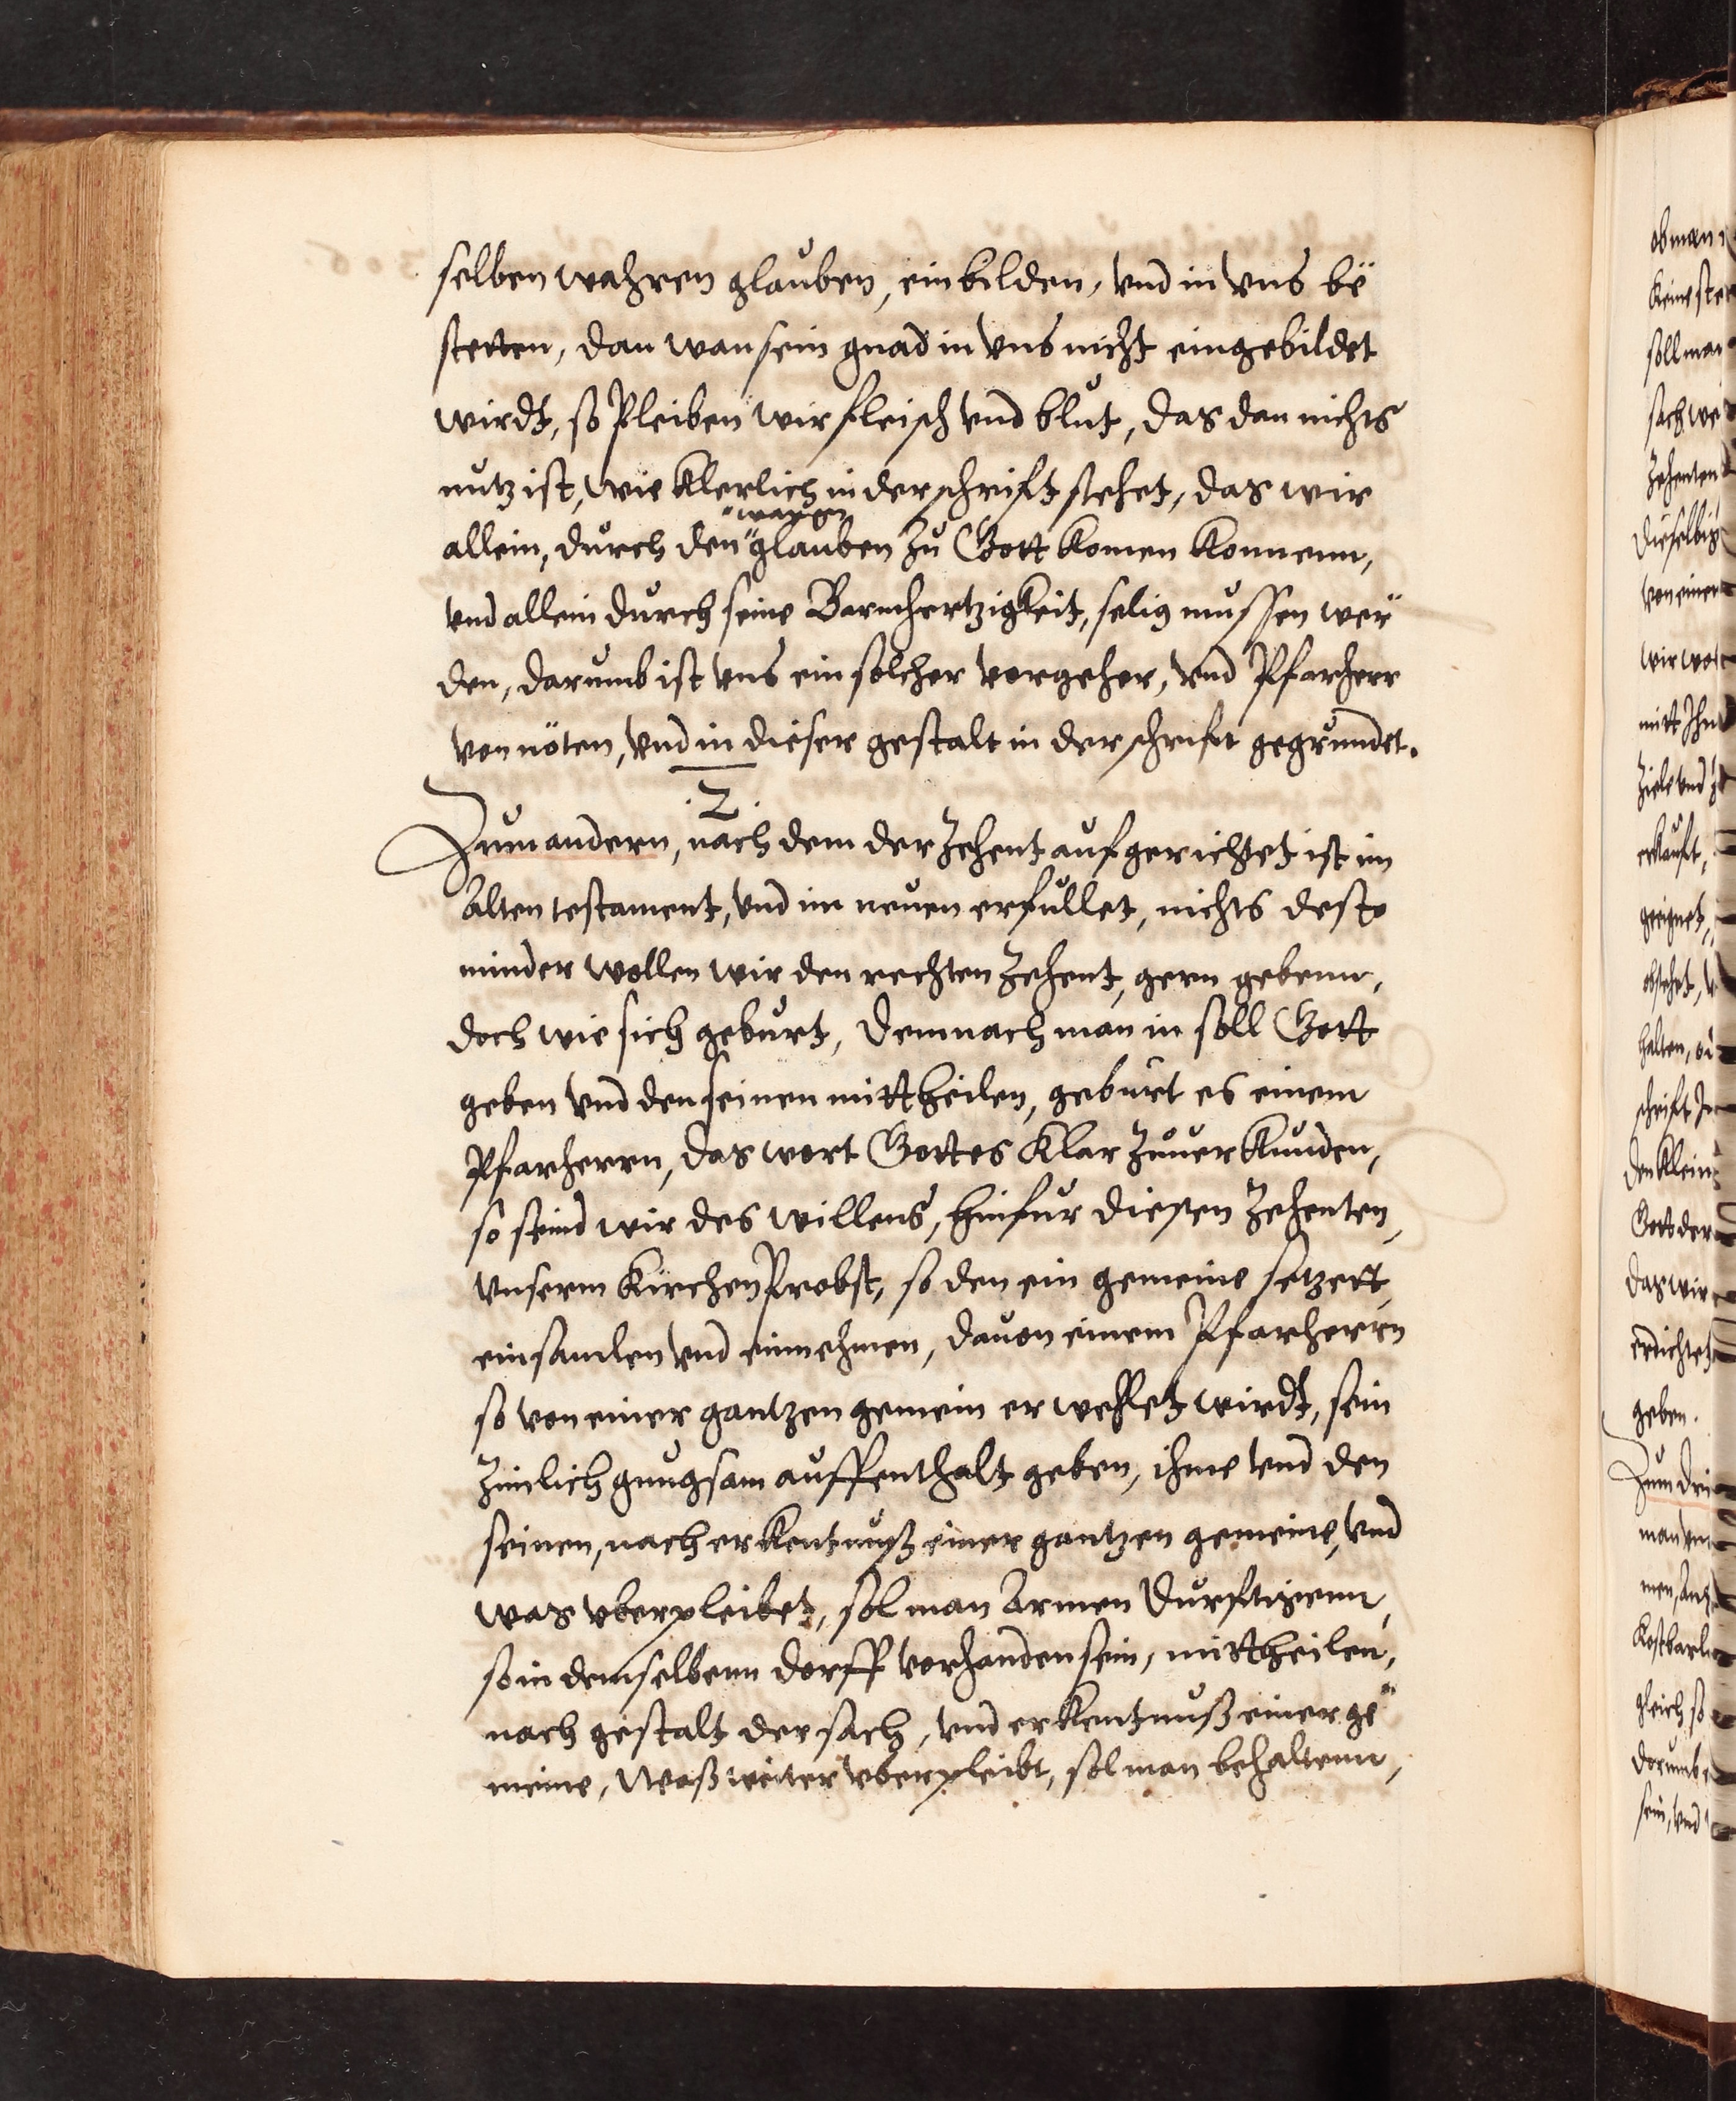 selben wahren glauben, einbilden, vnd in vns be¨
stetten, dan wan sein gnad in vns nicht eingebildet
wirdt, so pleiben wir fleisch vnd blut, das dan nichts
nutz ist, wie klerlich in der schrifft stehet, das wir
waren
allein, durch den glauben zu Gott komen konnenn,
vnd allein durch seine Barmhertzigkeit, selig mussen wer¨
den, darumb ist vns ein solcher vorgeher, vnd Pfarherr
von nöten, vnd in dieser gestalt in der schrifft gegrundet.
.2.
Zum andern, nach dem der Zehent auf gerichtet ist im
Alten testament, vnd im neuen erfullet, nichts desto
minder wollen wir den rechten Zehent, gern gebenn,
doch wie sich geburt, demnach man in soll Gott
geben vnd den seinen mittheilen, geburt es einem
Pfarherrn, das wort Gottes klar zuuerkunden,
so seind wir des willens, hinfur diesen Zehenten,
vnserm kirchen Probst, so den ein gemeine setzett,
einsamlen vnd einnehmen, dauon einem Pfarherrn
so von einer gantzen gemein erwehlet wirdt, sein
zimlich gnugsam auffenthalt geben, ihme vnd den
seinen, nach erkentnuß einer gantzen gemeine, vnd
was vberpleibet, sol man Armen Durfftigenn,
so in demselbenn dorff vorhanden sein, mittheilen,
nach gestalt der sach, vnd erkentnuß einer ge¨
meine, Waß weiter vberpleibt, sol man behaltenn,
ob man
keine ste
soll man
sach we
Zehenten
Dieselbig
von einer
wir wol
mitt Ihn
Ziele vnd
erkaufft,
geeignet,
obstehet,
halten,
schrifft
den klein
Gott der
das wir
erdichtet
geben.
Zum dri
man
men,
kostbarli
gleich so
dorumb
sein, vnd